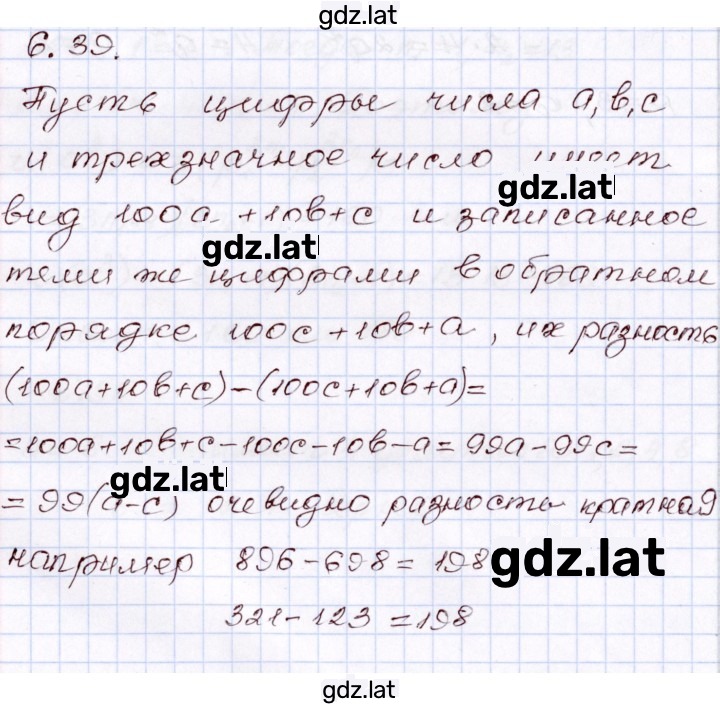 gdz.lat
6.39.
Пусть цифры числа a, в, с
и трехзначное число
gdz.lat
вид 100a+10в+c и записанное
gdz.lat
теми же цифрами в обратном
порядке 100c+10в+a, их разность
(100a+10в+c)-(100c+10в+a)=
=100a+10в+c-100c-10в-a=99a-99c=
gdz.lat
=99(a-c) очевидно разность кратна 9
например 896-698=198
gdz.lat
321-123=198
gdz.lat